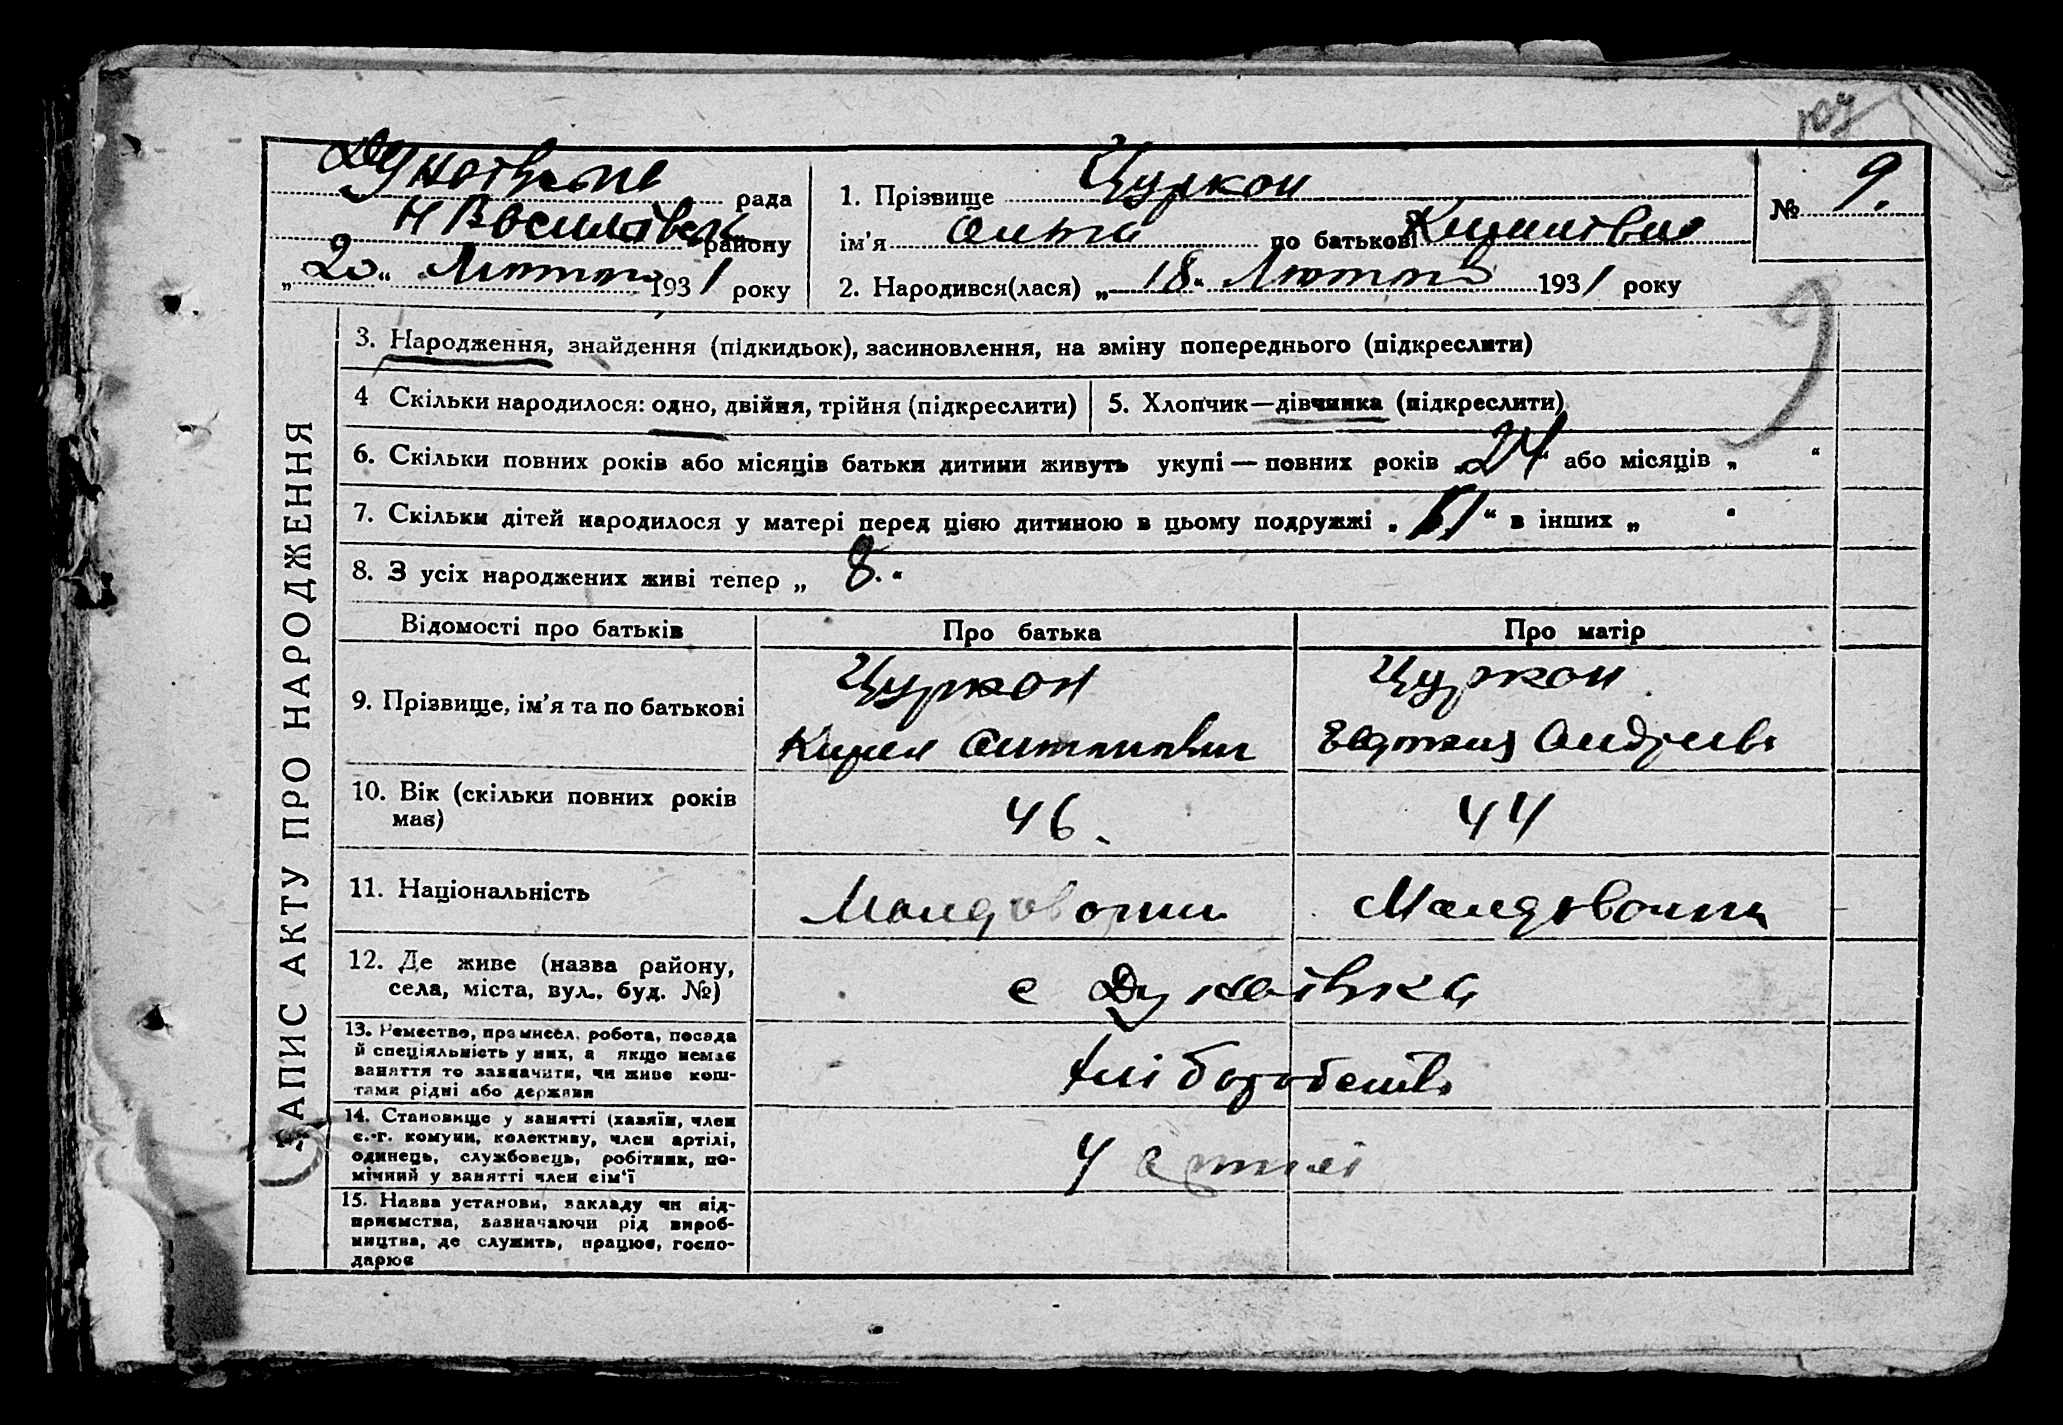 рада
району
„20“ Лютого 1931 року
1. Прізвище Цуркан
ім'я по батькові
2. Народився(лася) „18“ Лютого 1931 року
№ 9.
ЗАПИС АКТУ ПРО НАРОДЖЕННЯ
3. Народження, знайдення (підкидьок), засиновлення, на зміну попереднього (підкреслити)
4 Скільки народилося: одно, двійня, трійня (підкреслити)
5. Хлопчик—дівчинка (підкреслити)
6. Скільки повних років або місяців батьки дитини живуть укупі — повних років „24“ або місяців „ “
7. Скільки дітей народилося у матері перед цією дитиною в цьому подружжі „ “ в інших „ “
8. З усіх народжених живі тепер „ 8. “
Відомості про батьків
Про батька
Про матір
9. Прізвище, ім'я та по батькові
Цуркан
Цуркан
Кирил
Андреівна
10. Вік (скільки повних років
має)
46.
44
11. Національність
Малдованин
Малдованка
12. Де живе (назва району,
села, міста, вул., буд. №)
с
13. Ремество, промисел, робота, посада
й спеціяльність у них, а якщо немає
заняття то зазначити, чи живе кош-
тами рідні або держави
хліборобство
14. Становище у занятті (хазяїн, член
с.-г. комуни, колективу, член артілі,
одинець, службовець, робітник, по-
мічний у занятті член сім'ї
Ч артилі
15. Назва установи, закладу чи під-
приємства, зазначаючи рід вироб-
ництва, де служить, працює, госпо-
дарює